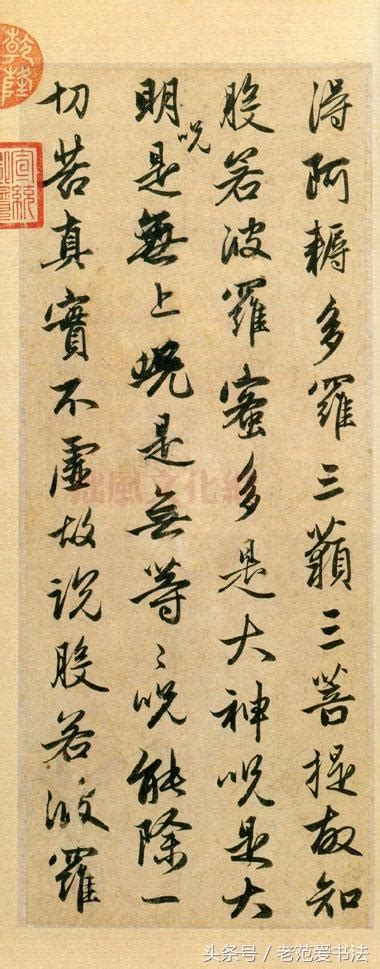 得阿耨多羅三藐三菩提故知
般若波羅蜜多是大神呪是大
明呪是無上呪是無等〻呪能除一
切苦真實不虛故說般若波羅
乾隆
宣統
头条号/老范爱书法